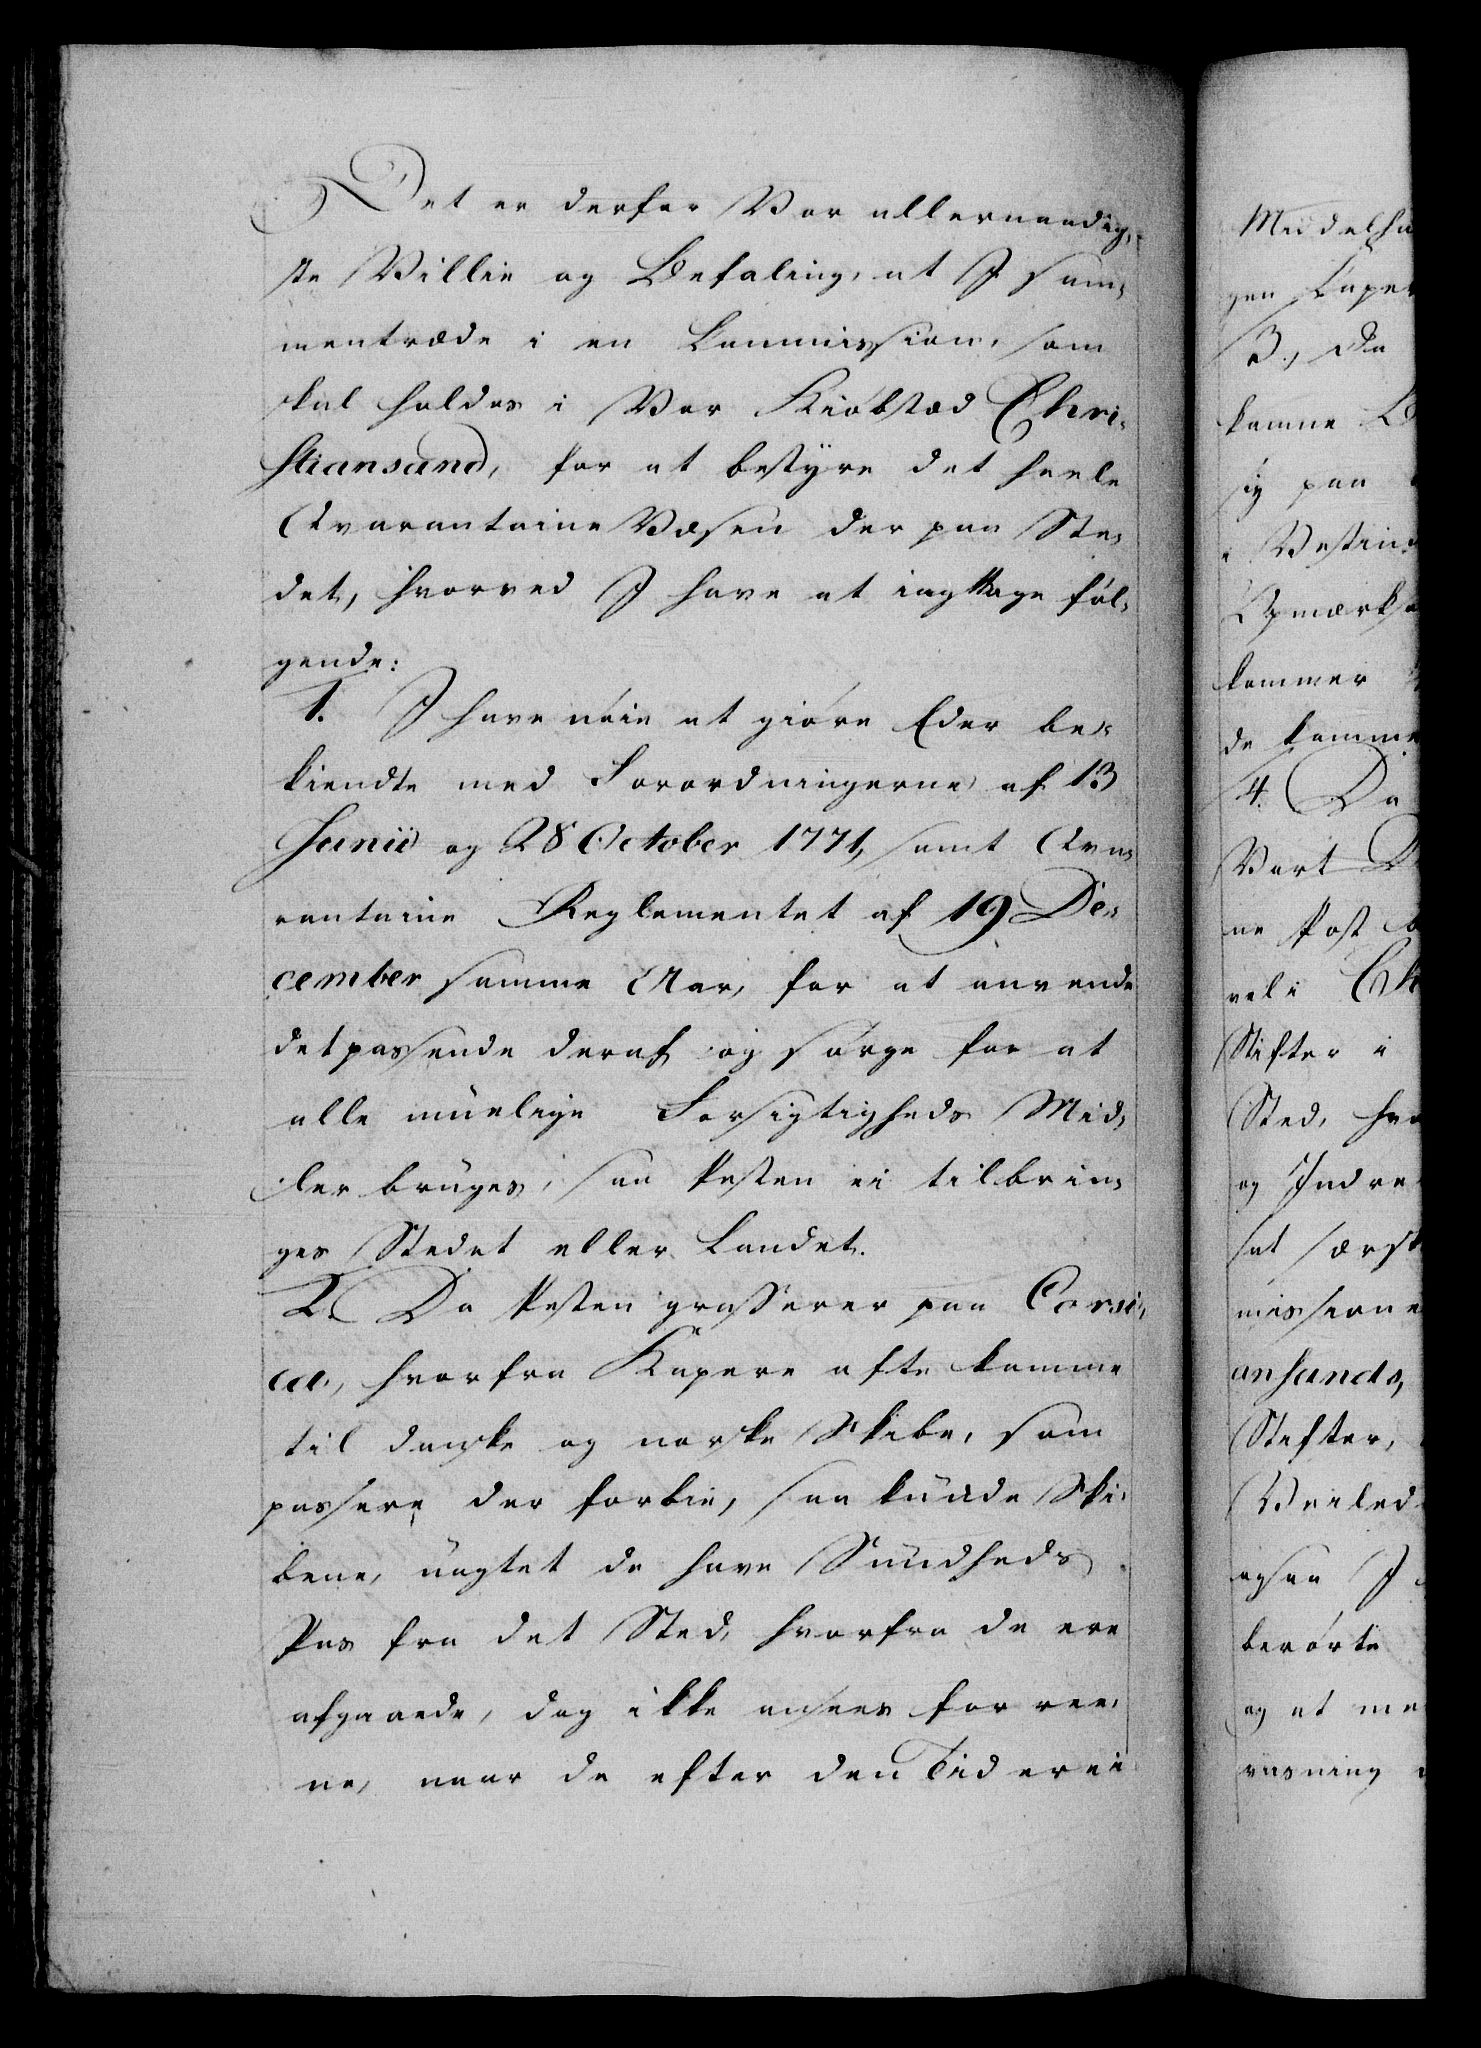 Det er derfor Vor allernaadig-
ste Villie og Befaling, at I sam-
mentræde i en Commission, som
skal holdes i Vor Kiøbstæd Chri-
stiansand, for at bestyre det heele
Qvarantaine Væsen der paa Ste-
det, hvorved I have at iagttage føl-
gende:
1. I have nøie at giøre Eder be-
kiendte med Forordningerne af 13
Junii og 28 October 1771, samt Qva-
rantaine Reglementet af 19 De-
cember samme Aar, for at anvende
det passende deraf og sørge for at
alle muelige Forsigtigheds Mid-
ler bruges, saa Pesten ei tilbrin-
ges Stedet eller Landet.
2. Da Pesten grasserer paa Corsi-
ca, hvorfra Kapere ofte komme
til danske og norske Skibe, som
passere der forbie, saa kunde Ski-
bene, uagtet de have Sundheds
Pas fra det Sted, hvorfra de ere
afgaaede, dog ikke ansees for ree-
ne, naar de efter den Tid ere i
Middelha
gen Kaper
3., Da
komne
sig paa
i Vestin
Opmærkso
kommer
de komme
4. Da
Vort
ne Post
vel i Ch
Stifter i
Sted, hvo
og Indre
hat særsk
missione
ansands,
Stifter,
Veiled
ogsaa I
berørte
og at me
viisning